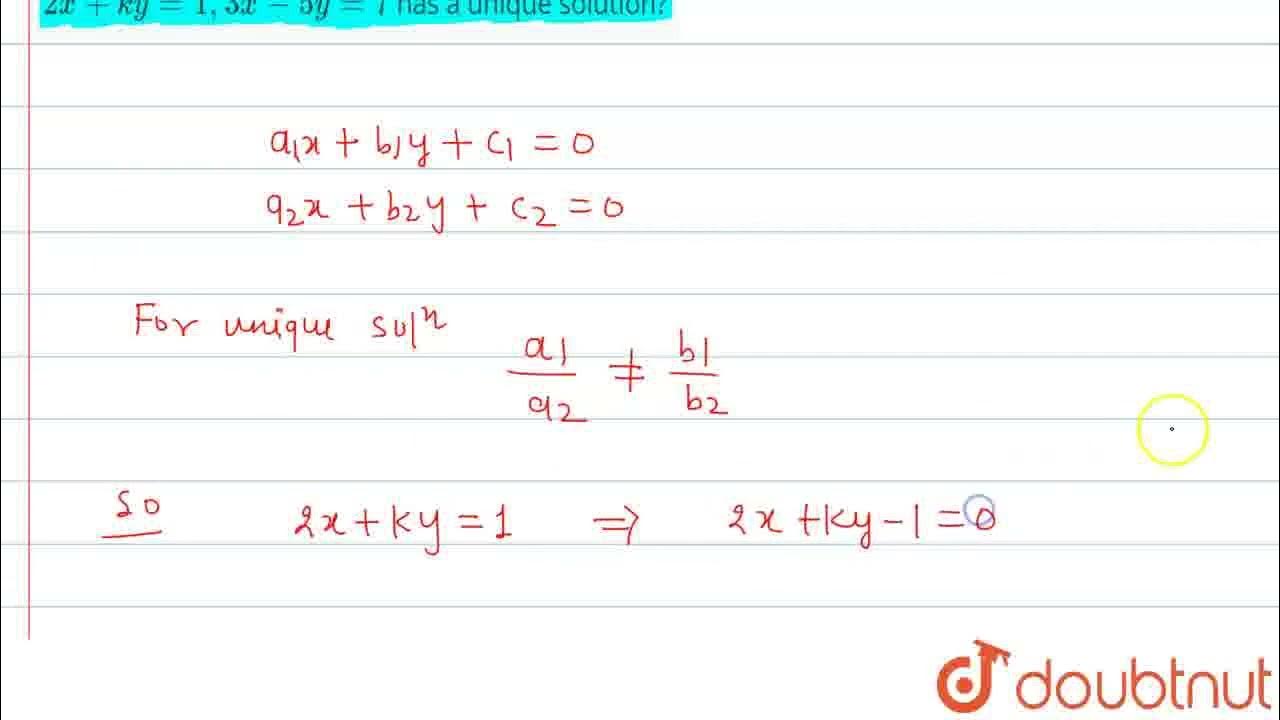 2x + ky = 1, 3x − 5y = 7 has a unique solution?
a₁x + b₁y + c₁ = 0
a₂x + b₂y + c₂ = 0
For unique solⁿ
a₁/a₂ ≠ b₁/b₂
So 2x + ky = 1 ⇒ 2x + ky − 1 = 0
doubtnut